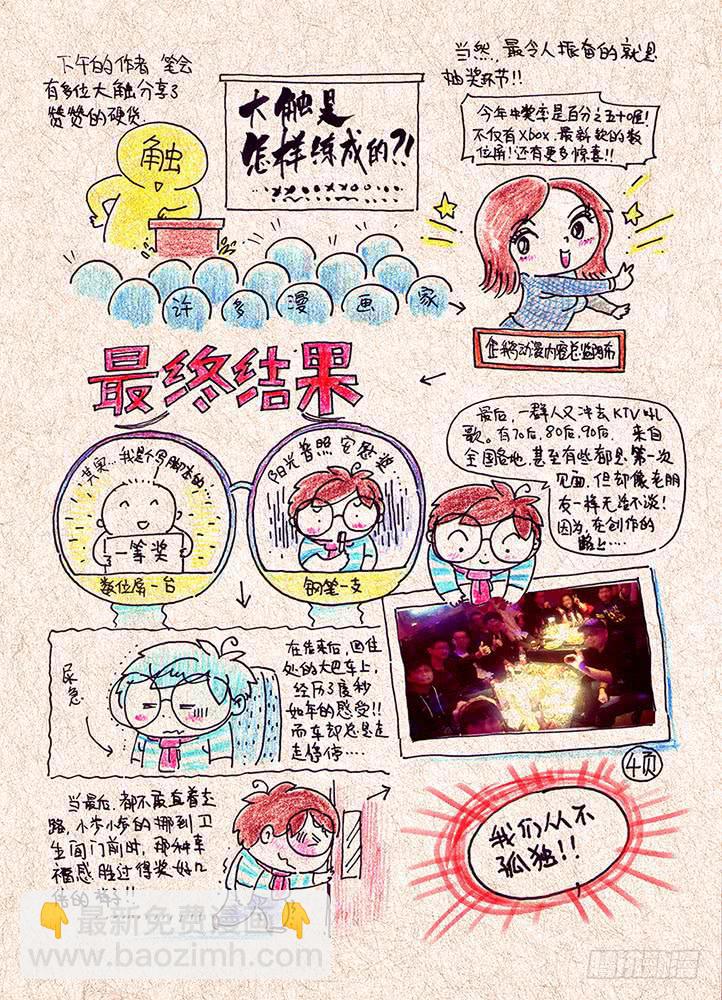 下午的作者笔会
有多位大触分享了
赞赞的硬货
触
大触是
怎样练成的?!
许多漫画家
当然,最令人振奋的就是
抽奖环节!!
今年中奖率是百分之五十喔!
不仅有Xbox、最新款的数
位屏!还有更多惊喜!!
企鹅动漫内容总监
最终结果
其实…我是个写脚本的…
一等奖
数位屏一台
阳光普照安慰奖…
钢笔一支
最后,一群人又冲去KTV吼
歌。有70后,80后,90后,来自
全国各地,甚至有些都是第一次
见面,但却像老朋
友一样无话不谈!
因为,在创作的
路上……
尿急
在结束后,回住
处的大巴车上,
经历了度秒
如年的感受!!
而车却总是走
走停停….
4页
当最后,都不敢直着走
路,小步小步的挪到卫
生间门前时,那种幸
福感胜过得奖好几
倍的样子!!
我们从不
孤独!!
最新免费漫画
www.baozimh.com
腾讯动漫